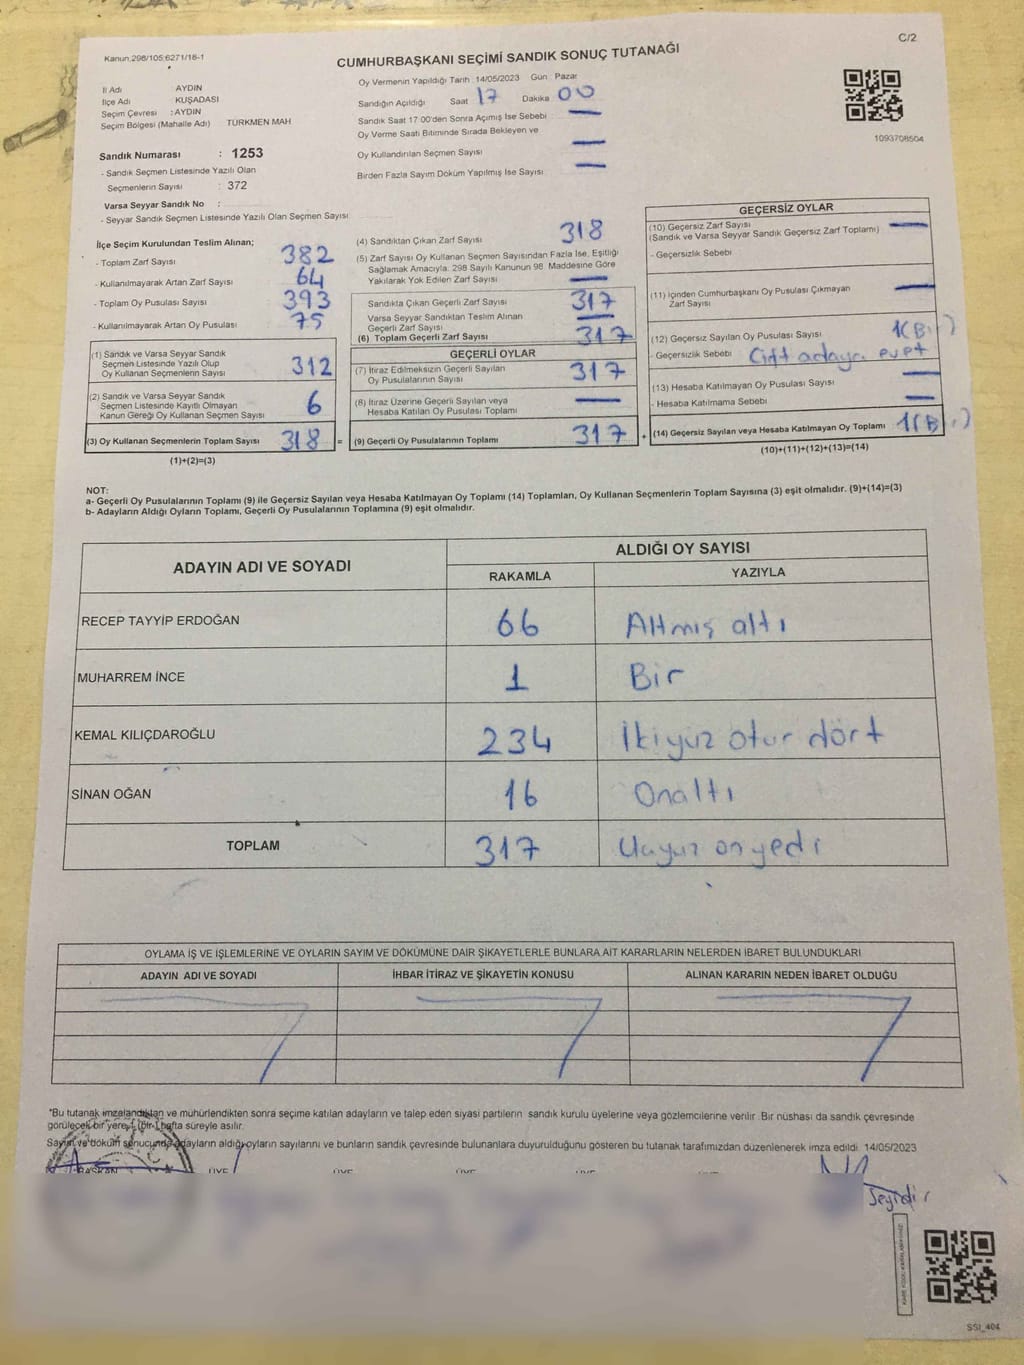 C/2
Kanun 298/105:6271/18-1
CUMHURBAŞKANI SEÇİMİ SANDIK SONUÇ TUTANAĞI
İl Adı AYDIN
İlçe Adı KUŞADASI
Seçim Çevresi : AYDIN
Seçim Bölgesi (Mahalle Adı) TÜRKMEN MAH
Oy Vermenin Yapıldığı Tarih : 14/05/2023 Gün Pazar
Sandığın Açıldığı Saat 17 Dakika 00
Sandık Saat 17 00'den Sonra Açımış İse Sebebi —
Oy Verme Saati Bitiminde Sırada Bekleyen ve
Oy Kullandırılan Seçmen Sayısı —
Birden Fazla Sayım Döküm Yapılmış İse Sayısı —
1093708504
Sandık Numarası : 1253
- Sandık Seçmen Listesinde Yazılı Olan
Seçmenlerin Sayısı : 372
Varsa Seyyar Sandık No :
- Seyyar Sandık Seçmen Listesinde Yazılı Olan Seçmen Sayısı
İlçe Seçim Kurulundan Teslim Alınan;
- Toplam Zarf Sayısı 382
- Kullanılmayarak Artan Zarf Sayısı 64
- Toplam Oy Pusulası Sayısı 393
- Kullanılmayarak Artan Oy Pusulası 75
(1) Sandık ve Varsa Seyyar Sandık
Seçmen Listesinde Yazılı Olup
Oy Kullanan Seçmenlerin Sayısı 312
(2) Sandık ve Varsa Seyyar Sandık
Seçmen Listesinde Kayıtlı Olmayan
Kanun Gereği Oy Kullanan Seçmen Sayısı 6
(3) Oy Kullanan Seçmenlerin Toplam Sayısı 318 =
(1)+(2)=(3)
(4) Sandıktan Çıkan Zarf Sayısı 318
(5) Zarf Sayısı Oy Kullanan Seçmen Sayısından Fazla İse, Eşitliği
Sağlamak Amacıyla; 298 Sayılı Kanunun 98. Maddesine Göre
Yakılarak Yok Edilen Zarf Sayısı —
Sandıkta Çıkan Geçerli Zarf Sayısı 317
Varsa Seyyar Sandıktan Teslim Alınan
Geçerli Zarf Sayısı —
(6) Toplam Geçerli Zarf Sayısı 317
GEÇERLİ OYLAR
(7) İtiraz Edilmeksizin Geçerli Sayılan
Oy Pusulalarının Sayısı 317
(8) İtiraz Üzerine Geçerli Sayılan veya
Hesaba Katılan Oy Pusulası Toplamı —
(9) Geçerli Oy Pusulalarının Toplamı 317 +
GEÇERSİZ OYLAR
(10) Geçersiz Zarf Sayısı —
(Sandık ve Varsa Seyyar Sandık Geçersiz Zarf Toplamı)
- Geçersizlik Sebebi
(11) İçinden Cumhurbaşkanı Oy Pusulası Çıkmayan
Zarf Sayısı —
(12) Geçersiz Sayılan Oy Pusulası Sayısı 1(Bir)
- Geçersizlik Sebebi Çift adaya evet
(13) Hesaba Katılmayan Oy Pusulası Sayısı —
- Hesaba Katılmama Sebebi —
(14) Geçersiz Sayılan veya Hesaba Katılmayan Oy Toplamı 1(Bir)
(10)+(11)+(12)+(13)=(14)
NOT:
a- Geçerli Oy Pusulalarının Toplamı (9) ile Geçersiz Sayılan veya Hesaba Katılmayan Oy Toplamı (14) Toplamları, Oy Kullanan Seçmenlerin Toplam Sayısına (3) eşit olmalıdır. (9)+(14)=(3)
b- Adayların Aldığı Oyların Toplamı, Geçerli Oy Pusulalarının Toplamına (9) eşit olmalıdır.
ADAYIN ADI VE SOYADI ALDIĞI OY SAYISI
RAKAMLA YAZIYLA
RECEP TAYYİP ERDOĞAN 66 Altmış altı
MUHARREM İNCE 1 Bir
KEMAL KILIÇDAROĞLU 234 İkiyüz otuz dört
SİNAN OĞAN 16 Onaltı
TOPLAM 317 Üçyüz onyedi
OYLAMA İŞ VE İŞLEMLERİNE VE OYLARIN SAYIM VE DÖKÜMÜNE DAİR ŞİKAYETLERLE BUNLARA AİT KARARLARIN NELERDEN İBARET BULUNDUKLARI
ADAYIN ADI VE SOYADI İHBAR İTİRAZ VE ŞİKAYETİN KONUSU ALINAN KARARIN NEDEN İBARET OLDUĞU
*Bu tutanak imzalandıktan ve mühürlendikten sonra seçime katılan adayların ve talep eden siyasi partilerin sandık kurulu üyelerine veya gözlemcilerine verilir. Bir nüshası da sandık çevresinde
görülecek bir yere 1 (bir) hafta süreyle asılır.
Sayım ve döküm sonucunda adayların aldığı oyların sayılarını ve bunların sandık çevresinde bulunanlara duyurulduğunu gösteren bu tutanak tarafımızdan düzenlenerek imza edildi 14/05/2023
BAŞKAN ÜYE ÜYE ÜYE ÜYE
SSI_404